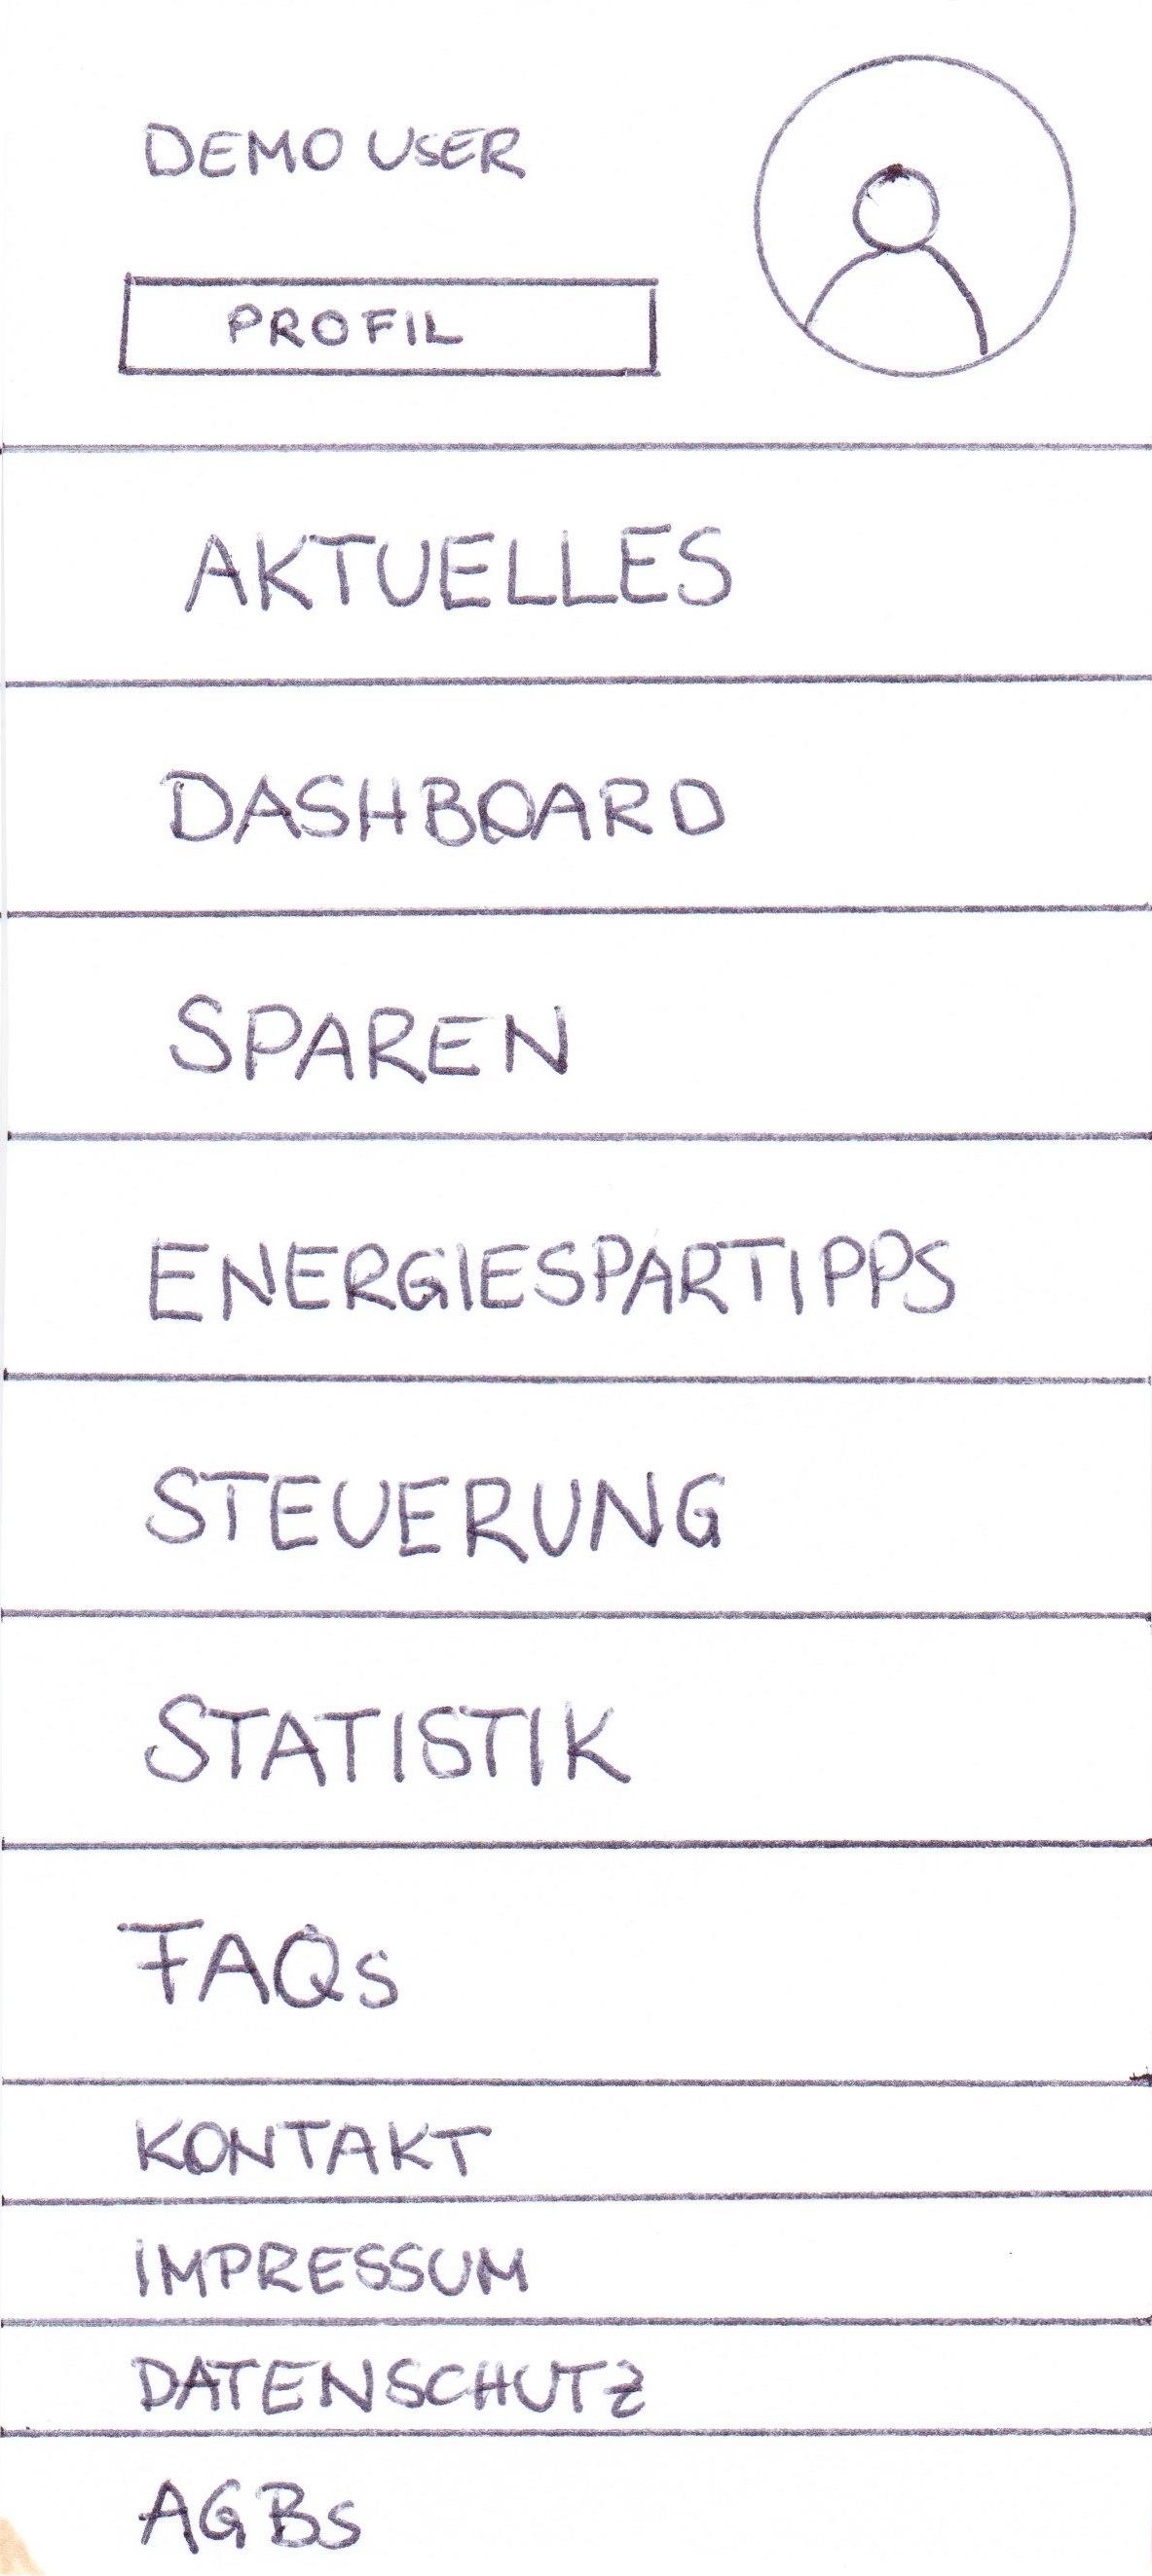 DEMO USER
PROFIL
AKTUELLES
DASHBOARD
SPAREN
ENERGIESPARTIPPS
STEUERUNG
STATISTIK
FAQs
KONTAKT
IMPRESSUM
DATENSCHUTZ
AGBs